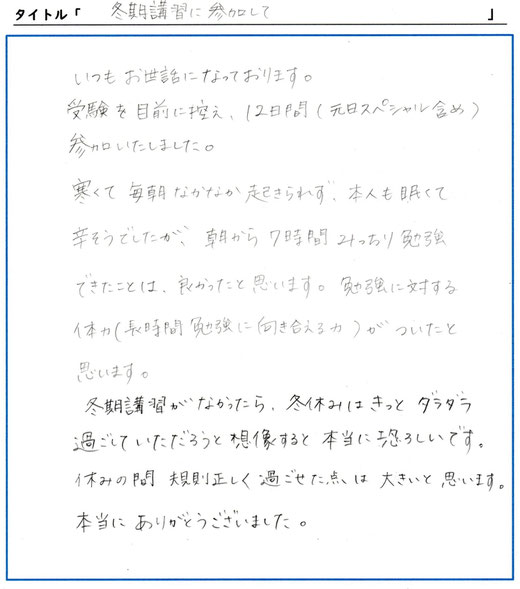 タイトル「 冬期講習に参加して 」
いつもお世話になっております。
受験を目前に控え、12日間(元日スペシャル含め)
参加いたしました。
寒くて毎朝なかなか起きられず、本人も眠くて
辛そうでしたが、朝から7時間みっちり勉強
できたことは、良かったと思います。勉強に対する
体力(長時間勉強に向き合える力)がついたと
思います。
冬期講習がなかったら、冬休みはきっとダラダラ
過ごしていただろうと想像すると本当に恐ろしいです。
休みの間規則正しく過ごせた点は大きいと思います。
本当にありがとうございました。